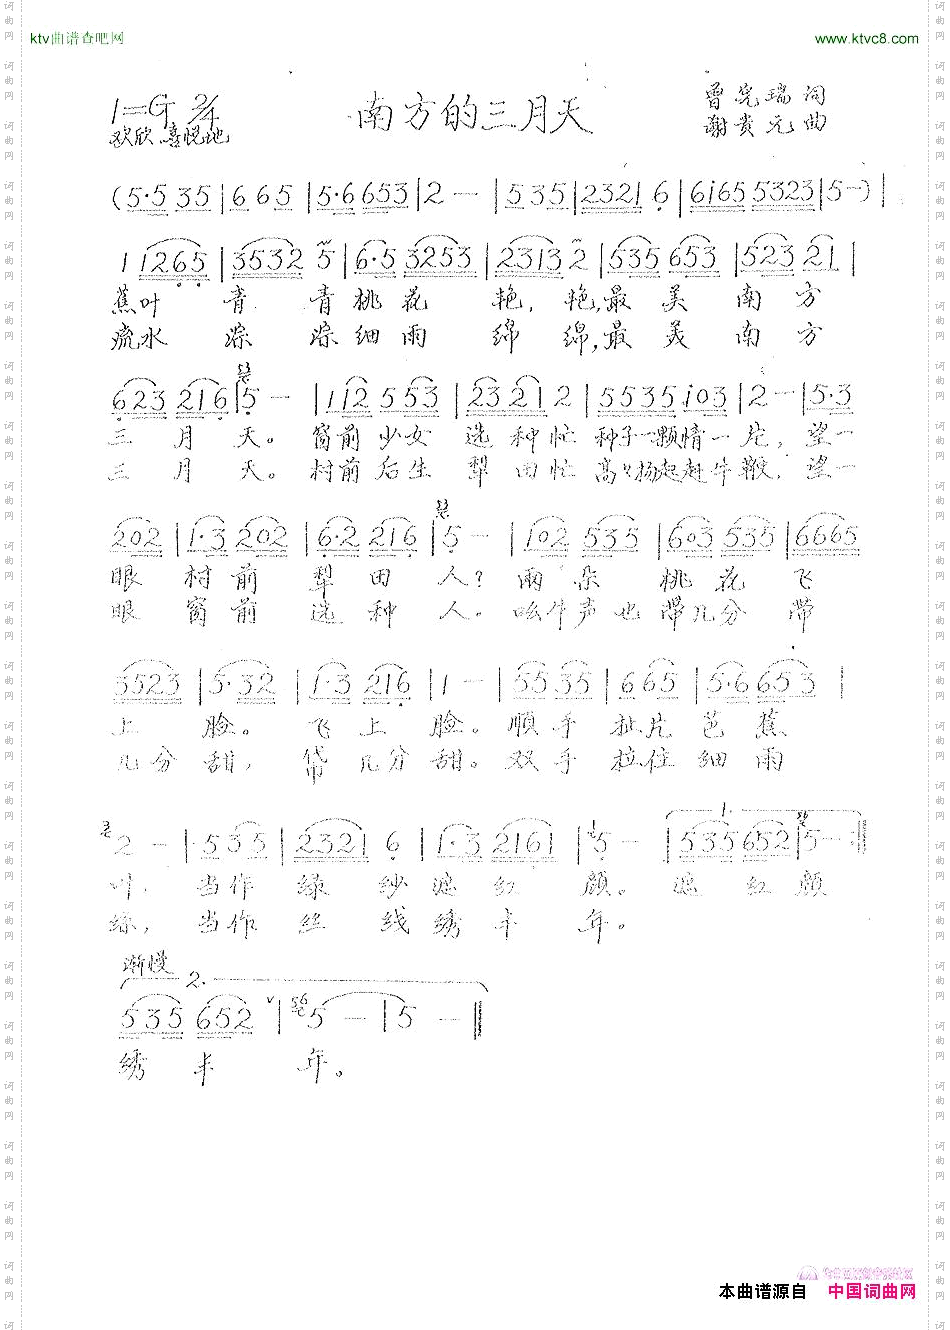 ktv曲谱查吧网
www.ktvc8.com
南方的三月天
1=G 2/4
欢欣 喜悦地
曾宪瑞 词
谢贵元 曲
(5·5 35 | 6 65 | 5·6 653 | 2 — | 5 35 | 2321 6 | 6165 5323 | 5 — ) |
1 1265 | 3532 5 | 6·5 3253 | 2313 2 | 535 653 | 523 21 |
蕉叶 青 青 桃花 艳, 艳,最 美 南 方
流水 淙 淙 细雨 绵 绵,最 美 南 方
623 216 | 5 — | 112 553 | 23 21 2 | 5535 103 | 2 — | 5·3
三 月 天。 窗前 少女 选 种忙 种子一颗情一 片, 望一
三 月 天。 村前 后生 犁 田忙 高々扬起赶牛 鞭, 望一
202 | 1·3 202 | 6·2 216 | 5 — | 102 535 | 603 535 | 6665
眼 村 前 犁 田 人? 两 朵 桃 花 飞
眼 窗 前 选 种 人。 吆牛声 也 带几分 带
3523 | 5·32 | 1·3 216 | 1 — | 55 35 | 6 65 | 5·6 653 |
上 脸。 飞 上 脸。 顺 手 扯片 芭 蕉
几分 甜, 带 几分 甜。 双 手 拉住 细 雨
2 — | 535 | 2321 6 | 1·3 2161 | 5 — | 535 652 | 5 — :||
1.
叶, 当作 绿 纱 遮 红 颜。 遮 红 颜
丝, 当作 丝 线 绣 丰 年。
渐慢
2.
535 652 | 5 — | 5 — ||
绣 丰 年。
本曲谱源自 中国词曲网